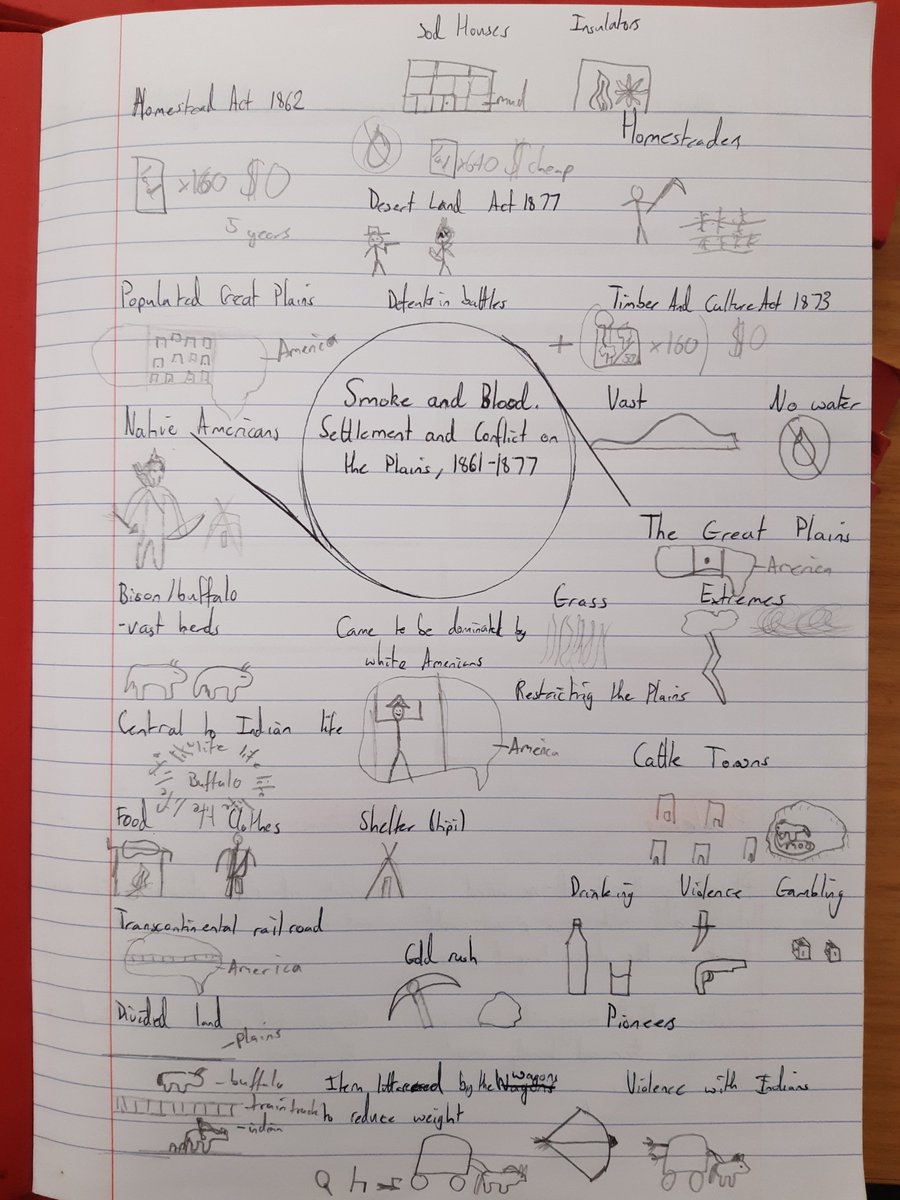 Sod Houses
Insulators
Homestead Act 1862
mud
Homesteaders
x160 $0
x640 $ cheap
5 years
Desert Land Act 1877
Populated Great Plains
Defeats in battles
Timber And Culture Act 1873
America
+
x160 $0
Smoke and Blood.
Settlement and Conflict on
the Plains, 1861-1877
Vast
No water
Native Americans
The Great Plains
America
Bison/buffalo
-vast herds
Came to be dominated by
white Americans
Grass
Extremes
Restricting the Plains
Central to Indian life
America
Cattle Towns
life life
Buffalo
life
Food
Clothes
Shelter (tipi)
moo
Drinking
Violence
Gambling
Transcontinental railroad
America
Gold rush
Divided land
plains
Pioneers
-buffalo
-train track
-indian
Item littered by the wagons
to reduce weight
Violence with Indians